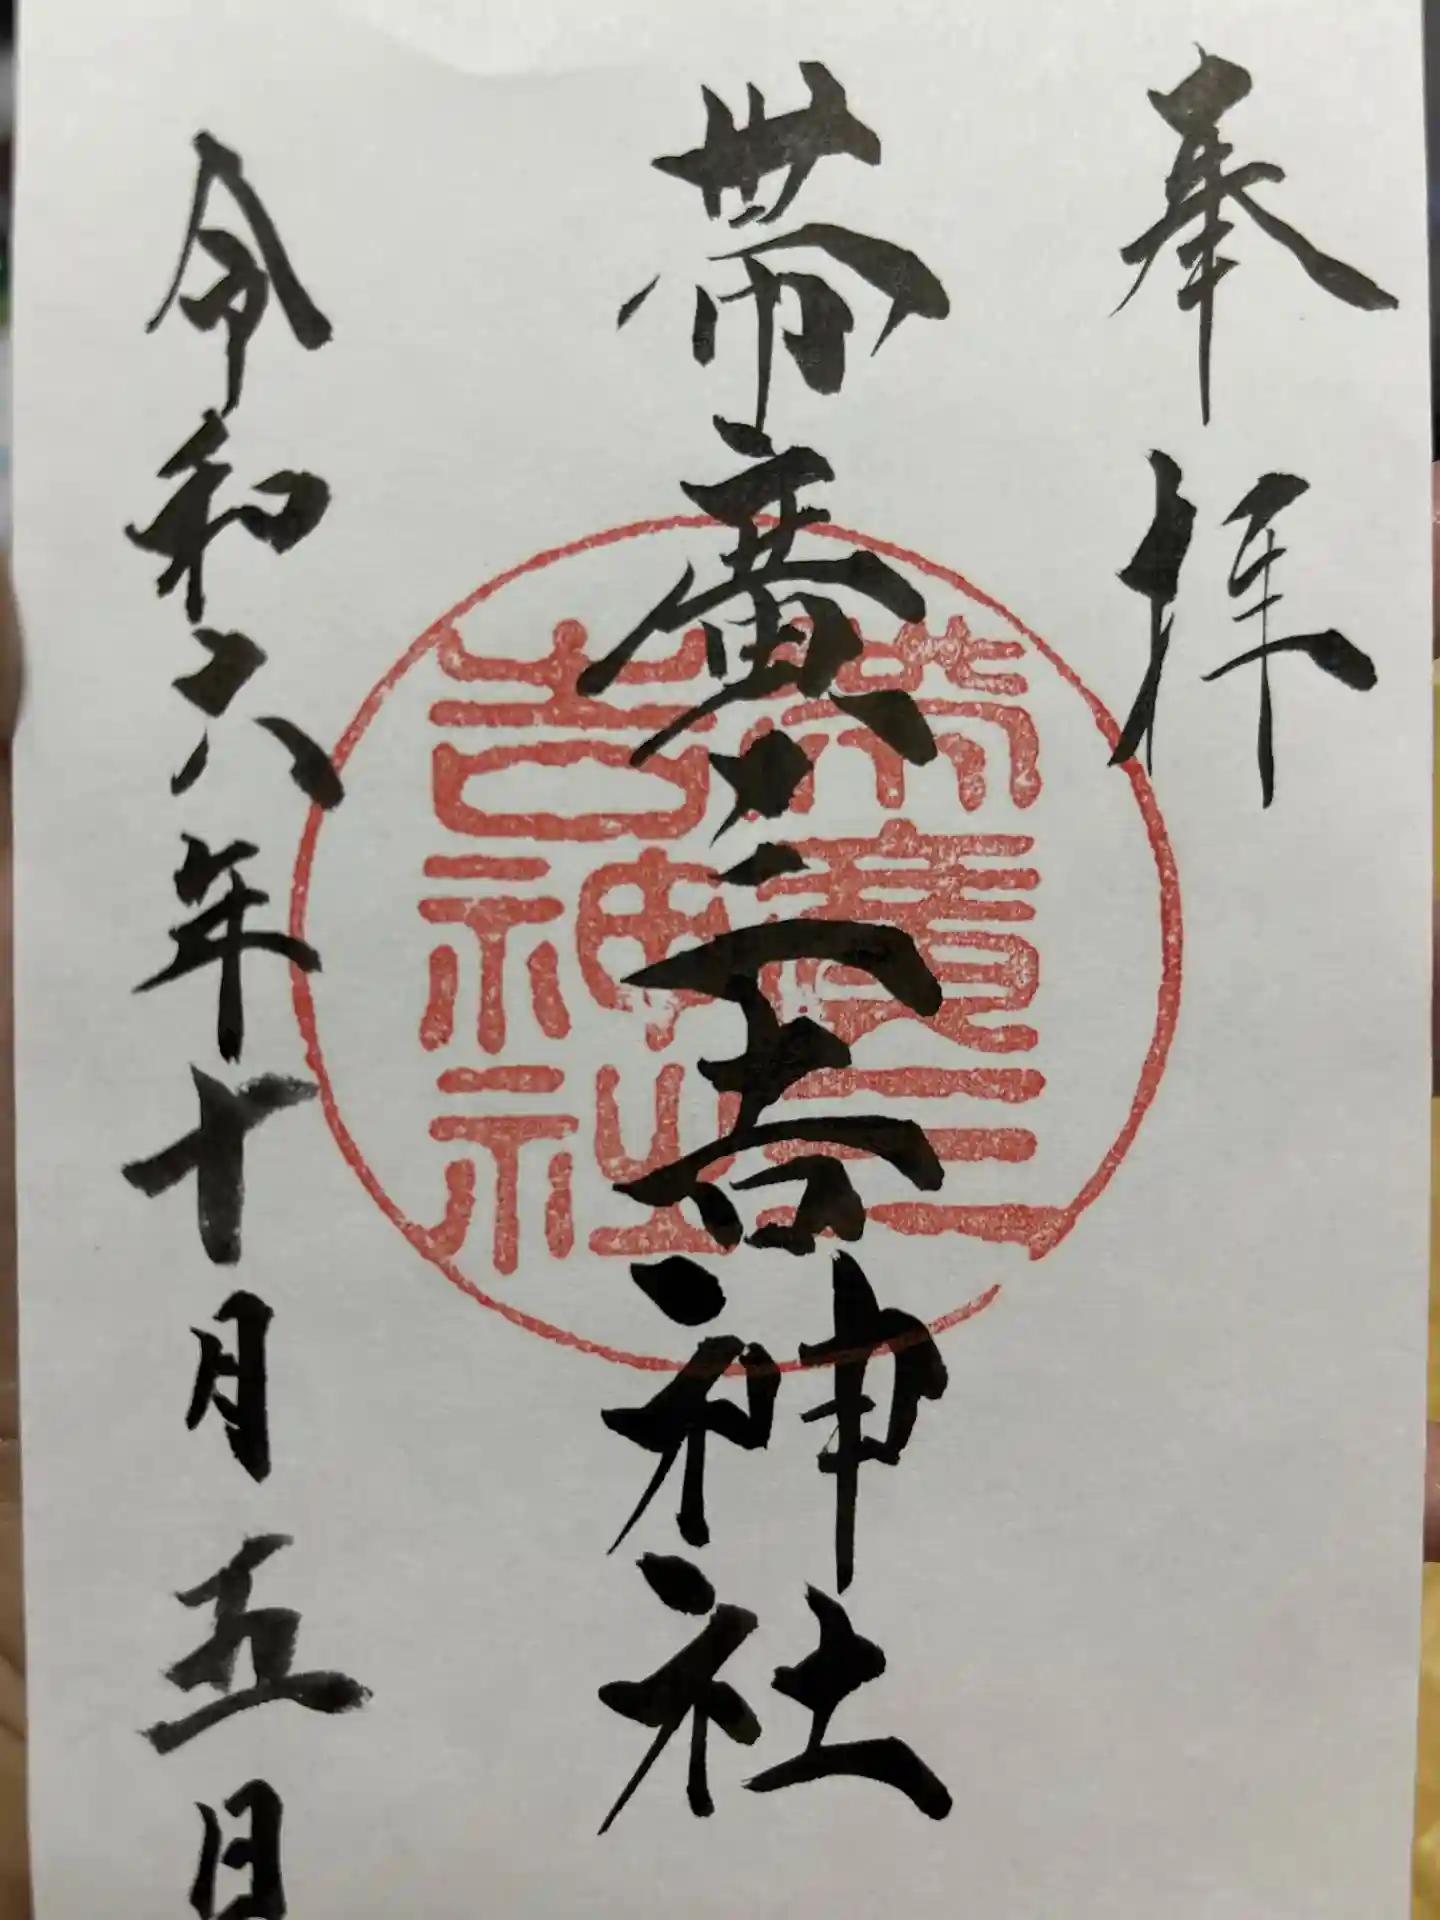 奉拝
帯廣三吉神社
帯廣三吉神社
令和六年十月五日